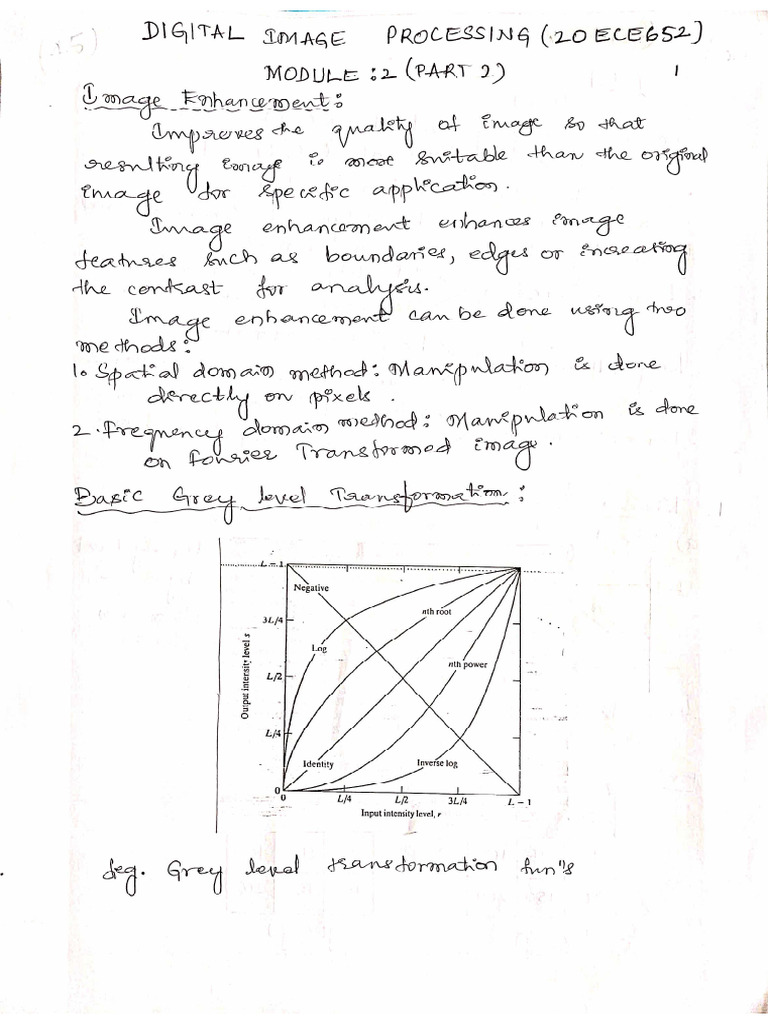 DIGITAL IMAGE PROCESSING (20ECE652)
MODULE:2 (PART 2)
1
Image Enhancement:
Improves the quality of image so that
resulting image is more suitable than the original
image for specific application.
Image enhancement enhances image
features such as boundaries, edges or increasing
the contrast for analysis.
Image enhancement can be done using two
methods:
1. Spatial domain method: Manipulation is done
directly on pixels.
2. Frequency domain method: Manipulation is done
on Fourier Transformed image.
Basic Grey level Transformation:
L – 1
Negative
3L/4
nth root
Log
nth power
L/2
L/4
Identity
Inverse log
0
0 L/4 L/2 3L/4 L – 1
Output intensity level s
Input intensity level, r
fig. Grey level transformation fun"s